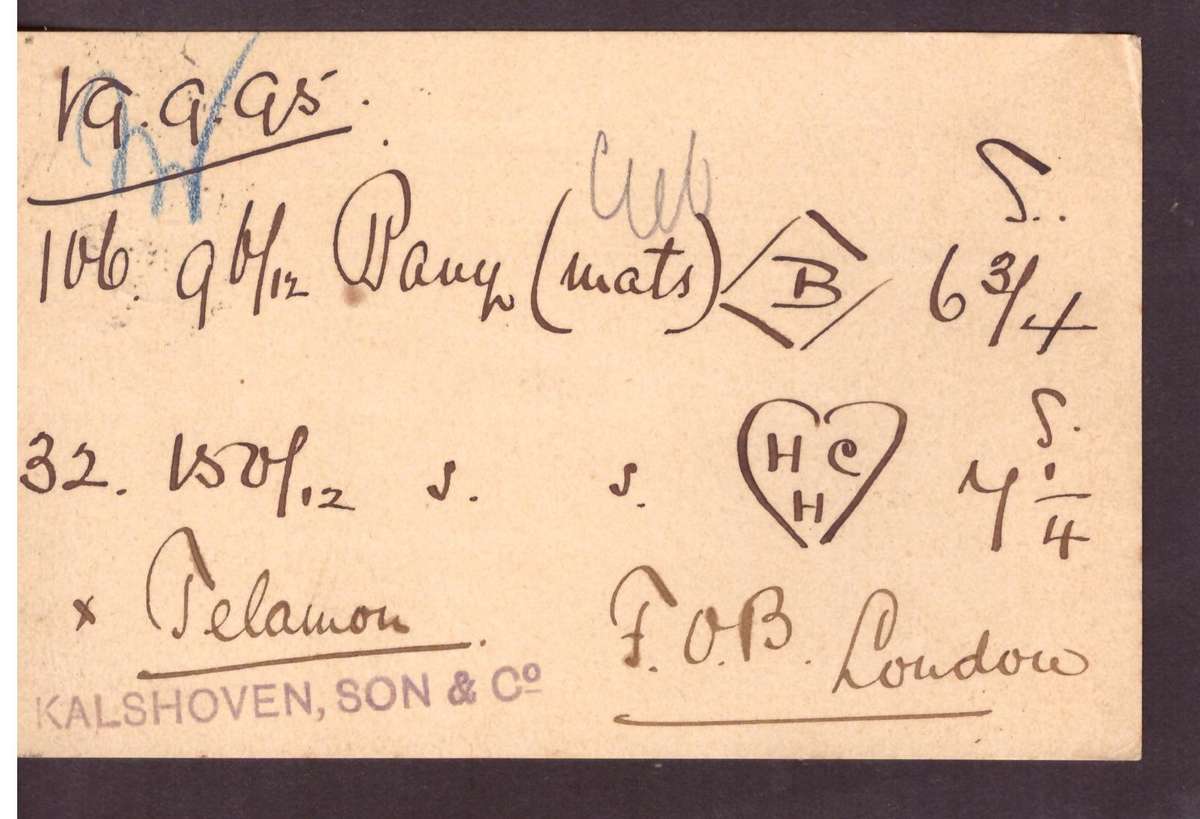 19.9.95.
106. 90/12 (mats) B 6 3/4
32. 150/12 s. s. H C H 7 1/4
x Telamon. F.O.B. London
KALSHOVEN, SON & Cº